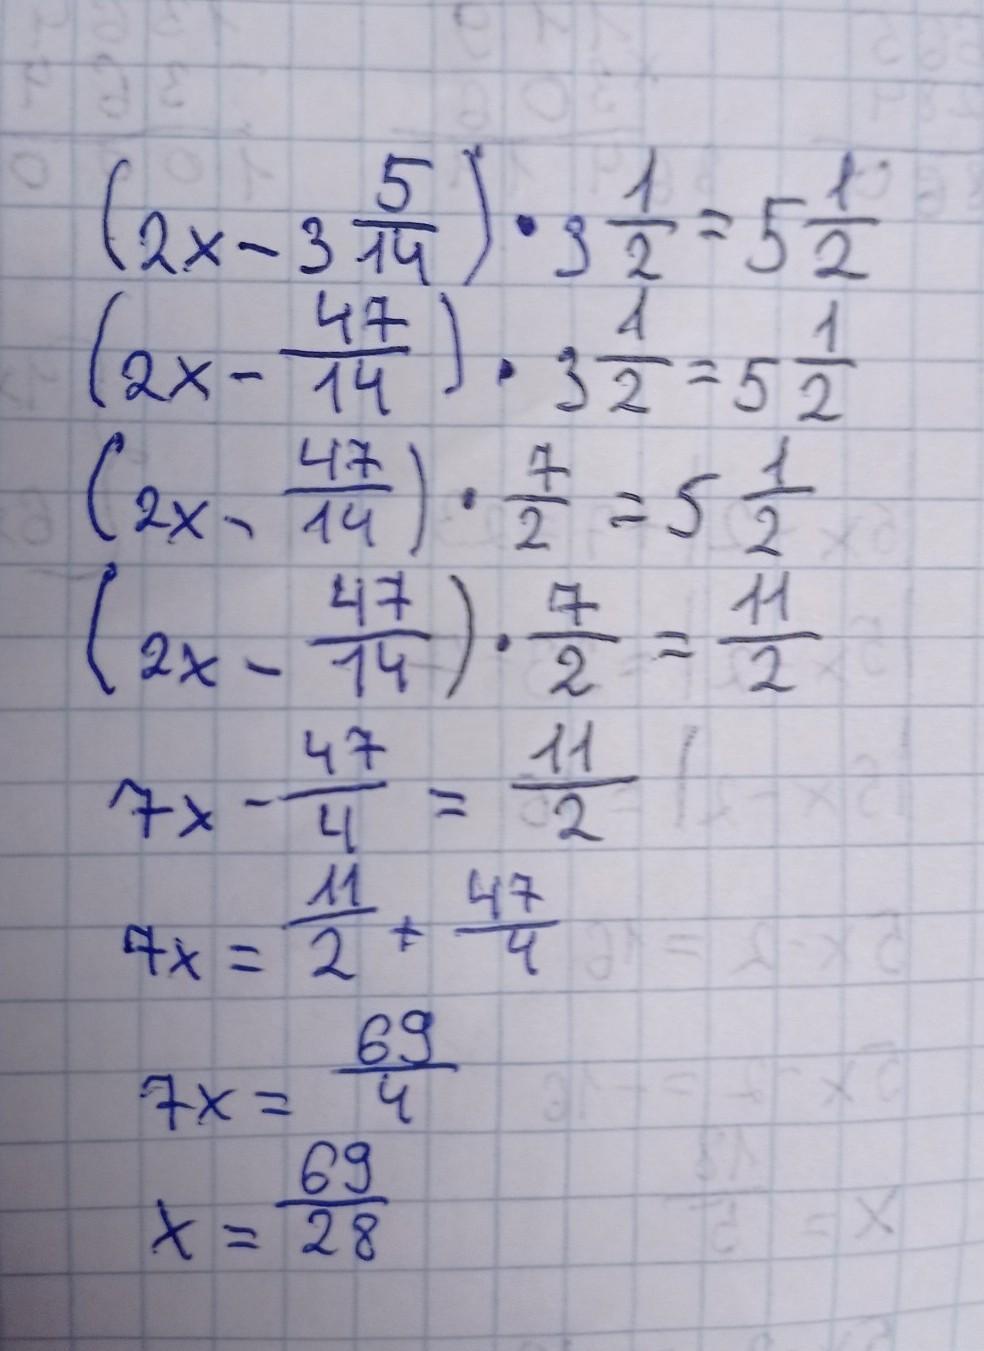 (2x - 3 5/14) · 3 1/2 = 5 1/2
(2x - 47/14) · 3 1/2 = 5 1/2
(2x - 47/14) · 7/2 = 5 1/2
(2x - 47/14) · 7/2 = 11/2
7x - 47/4 = 11/2
7x = 11/2 + 47/4
7x = 69/4
x = 69/28